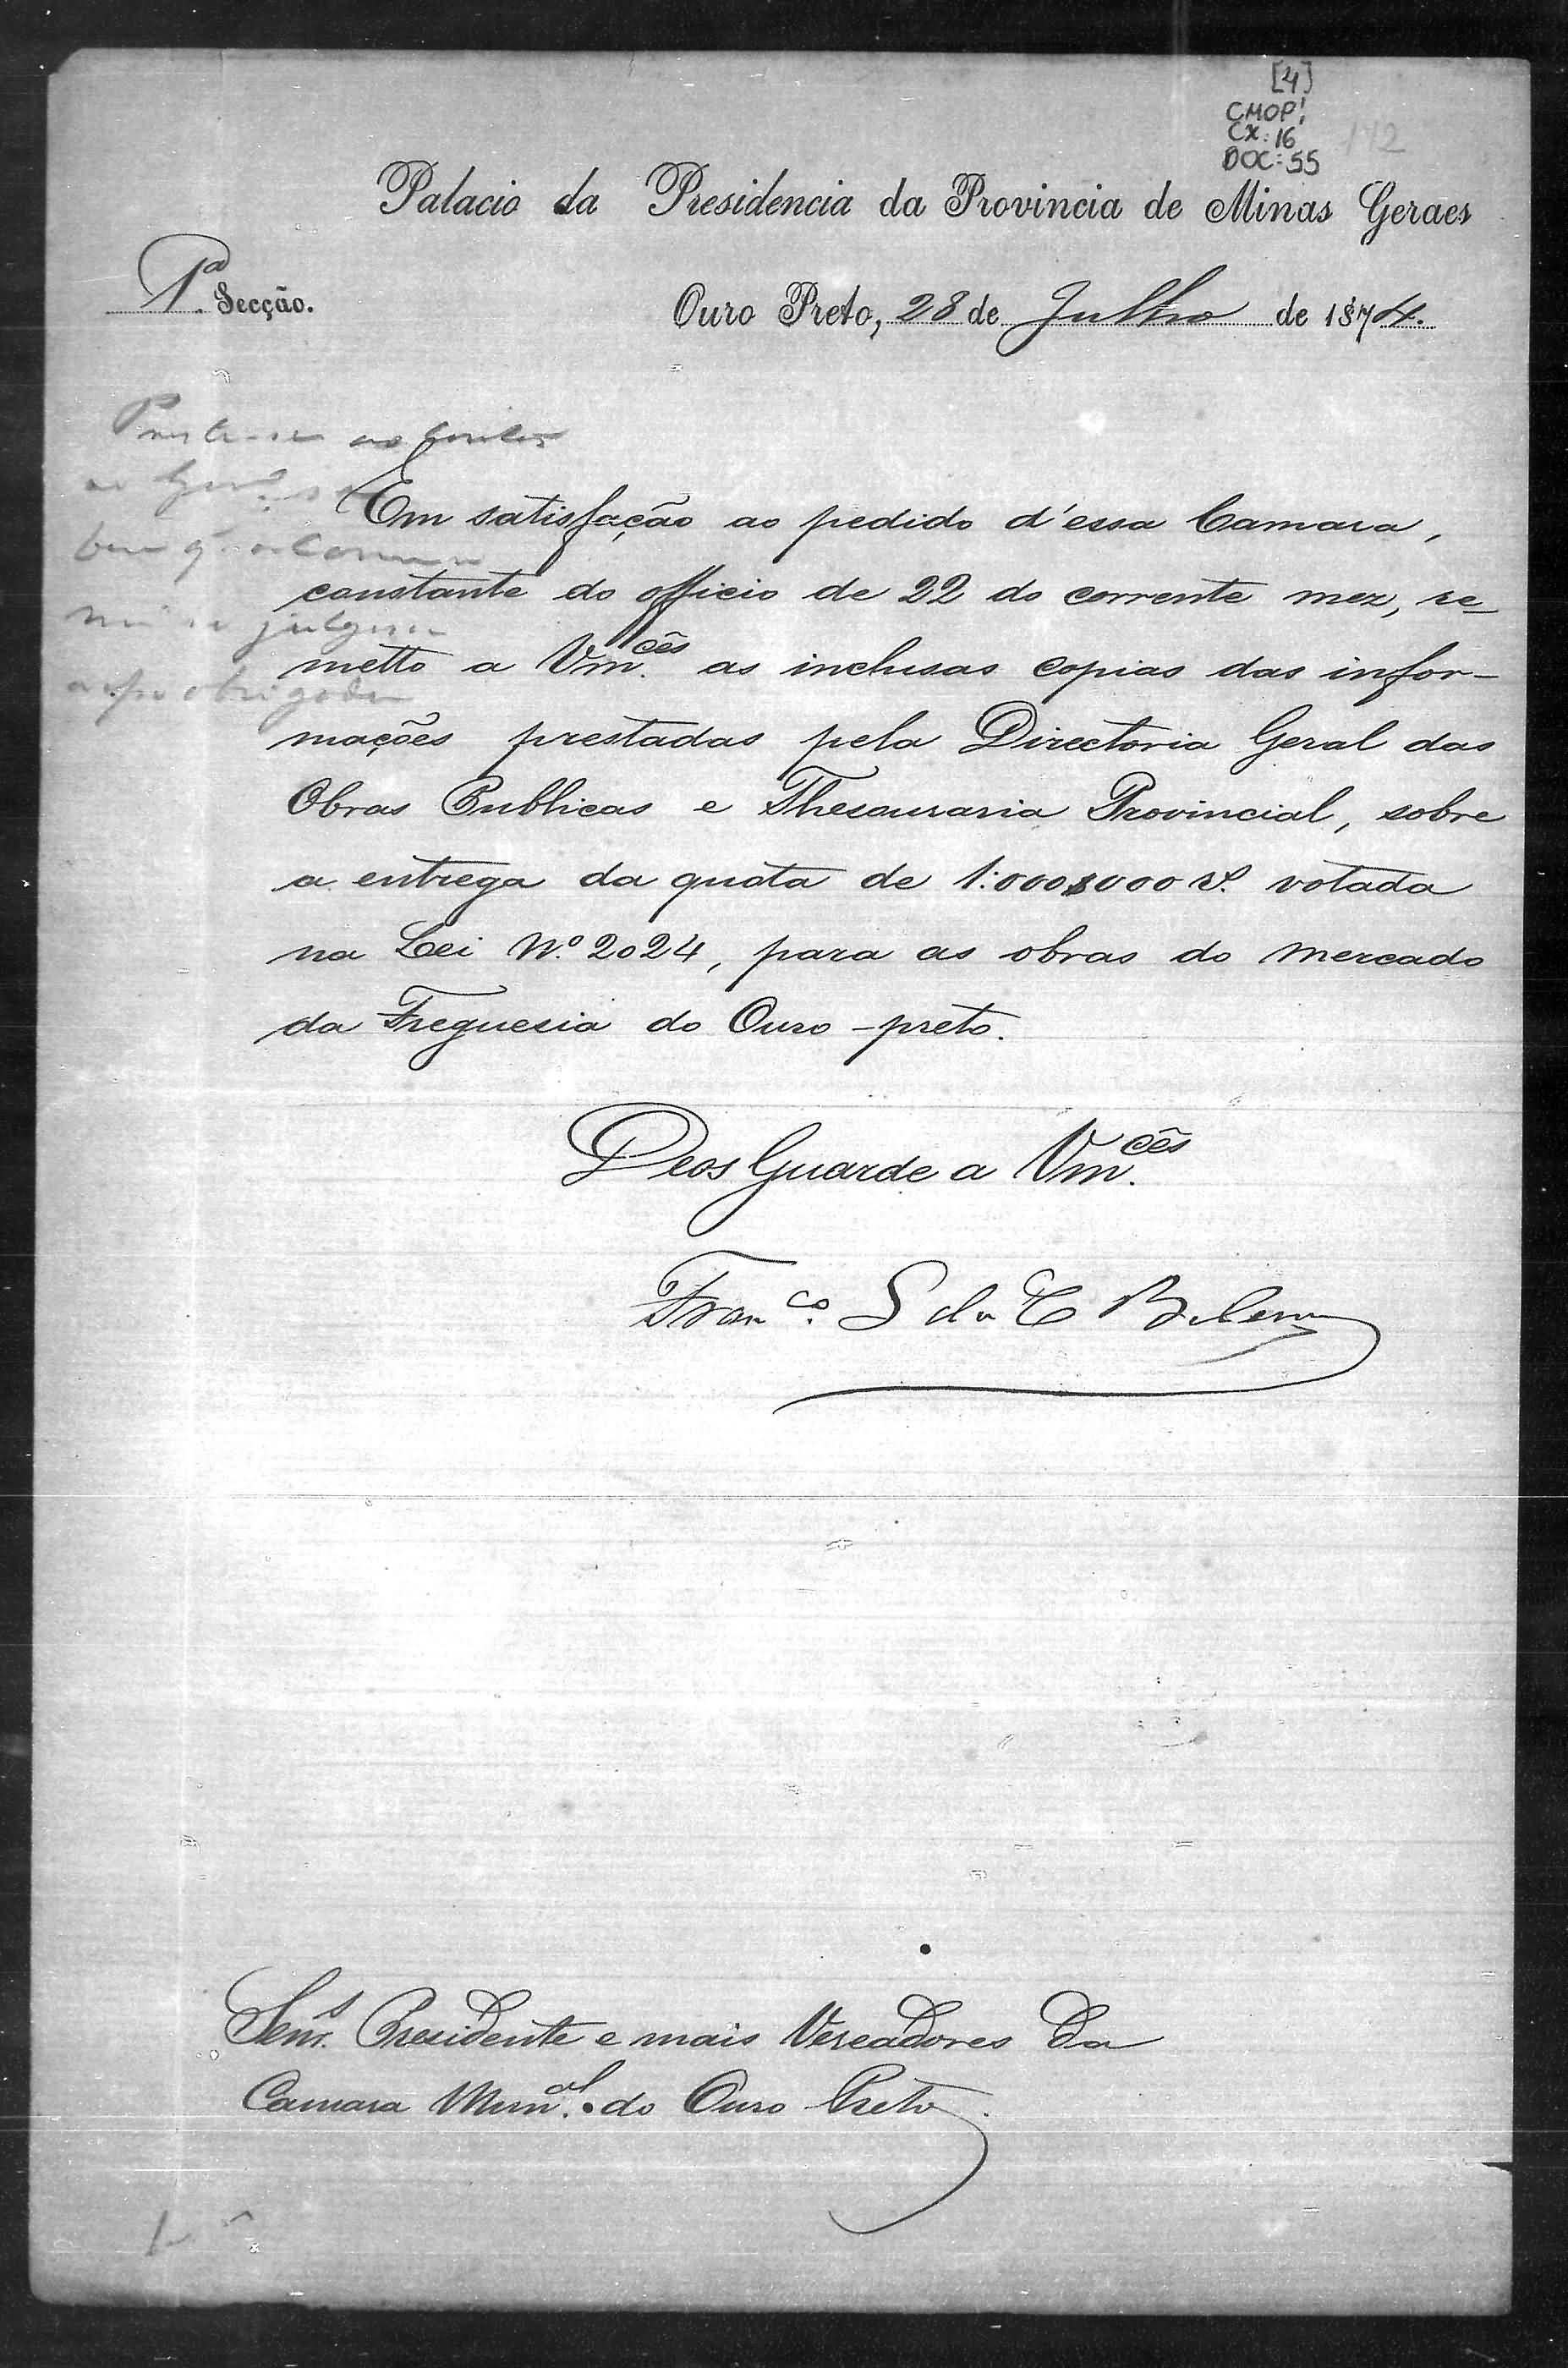 [4]
CMOP!
CX: 16
DOC: 55
172
Palacio da Presidencia da Provincia de Minas Geraes
1ª Secção.
Ouro Preto, 28 de Julho de 1874.
Em satisfação ao pedido d'essa Camara,
constante do officio de 22 do corrente mez, re-
metto a Vm.cês as inclusas copias das infor-
mações prestadas pela Directoria Geral das
Obras Publicas e Thesouraria Provincial, sobre
a entrega da quota de 1:000$000 rs. votada
na Lei Nº 2024, para as obras do mercado
da Freguesia do Ouro-preto.
Deos Guarde a Vm.cês
Franco. S da C
Senrs. Presidente e mais Vereadores da
Camara Munal. do Ouro Preto.